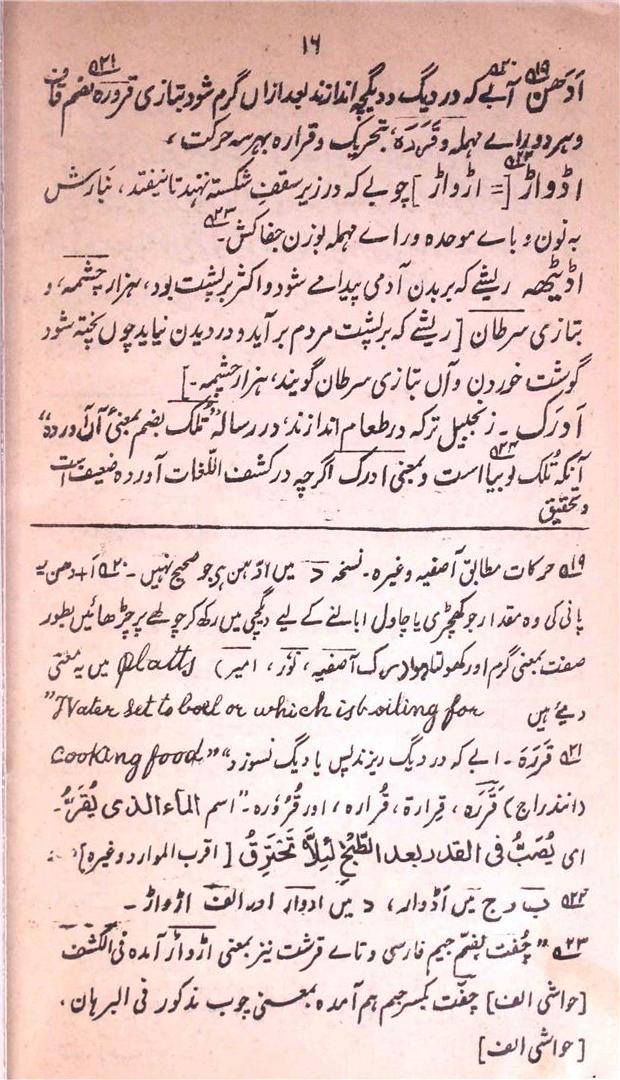 ۱۶
اَدْھَن۵۱۹ آبے۵۲۰ کہ در دیگ و دیگچہ اندازند بعد ازاں گرم شود بتازی قرورہ۵۲۱ بضم قاف
وہر دو راے مہملہ و قَرَرَۃ، بتحریک و قرارہ بہرسہ حرکت ،
اڈواڑ۵۲۲ [= اڑواڑ] چوبے کہ در زیر سقفِ شکستہ نہند تا نیفتد، نَبارش
بہ نون و باے موحدہ و راے مہملہ بوزن جفاکش۵۲۳۔
اڈیٹھہ ریشے کہ بر بدن آدمی پیدا مے شود و اکثر بر پشت بود، ہزار چشمہ، و
بتازی سرطان [ریشے کہ بر پشت مردم بر آید و در دیدن نیاید چوں پختہ شود
گوشت خوردن و آں بتازی سرطان گویند، ہزار چشمہ۔]
اَدرَک ۔ زنجبیل ترکہ در طعام اندازند، در رسالہ "تُلک بضم بمعنیٔ آں آوردہ"
آنکہ تُلک لوبیا است و بمعنی ادرک اگرچہ در کشف اللّغات آوردہ ضعیف است
و تحقیق
۵۱۹ حرکات مطابق آصفیہ وغیرہ۔ نسخہ د میں اڈہن ہی جو صحیح نہیں ۔ ۵۲۰ اَ+دھن یہ
پانی کی وہ مقدار جو کھچڑی یا چاول ابالنے کے لیے دیگچی میں رکھ کر چولھے پر چڑھائیں بطور
صفت بمعنی گرم اور کھولتا ہوا (سرک آصفیہ، نور، امیر) platts میں یہ معنی
دیئے ہیں "Water set to boil or which is boiling for
cooking food" ۵۲۱ قررَۃ ۔ ابے کہ در دیگ ریزند پس یا دیگ نسوزد"
(انندراج) قَرَّرَہ ، قِرارۃ، قُرارہ ، اور قُرُورَہ۔ "اسم الماء الذی یُقَرُّ۔
ای یُصَبُّ فی القدر بعد الطّبخ لِئلاّ تَحْتَرِقُ [اقرب الموارد وغیرہ]
۵۲۲ ب و ج میں اَڈوار، د میں ادوار اور الف اڑواڑ ۔
۵۲۳ "جُفت بضم جیم فارسی و تاے قرشت نیز بمعنی اڑواڑ آمدہ فی الکشف
[حواشی الف] چفت بکسر جیم ہم آمدہ بمعنی چوب مذکور فی البرہان .
[حواشی الف]